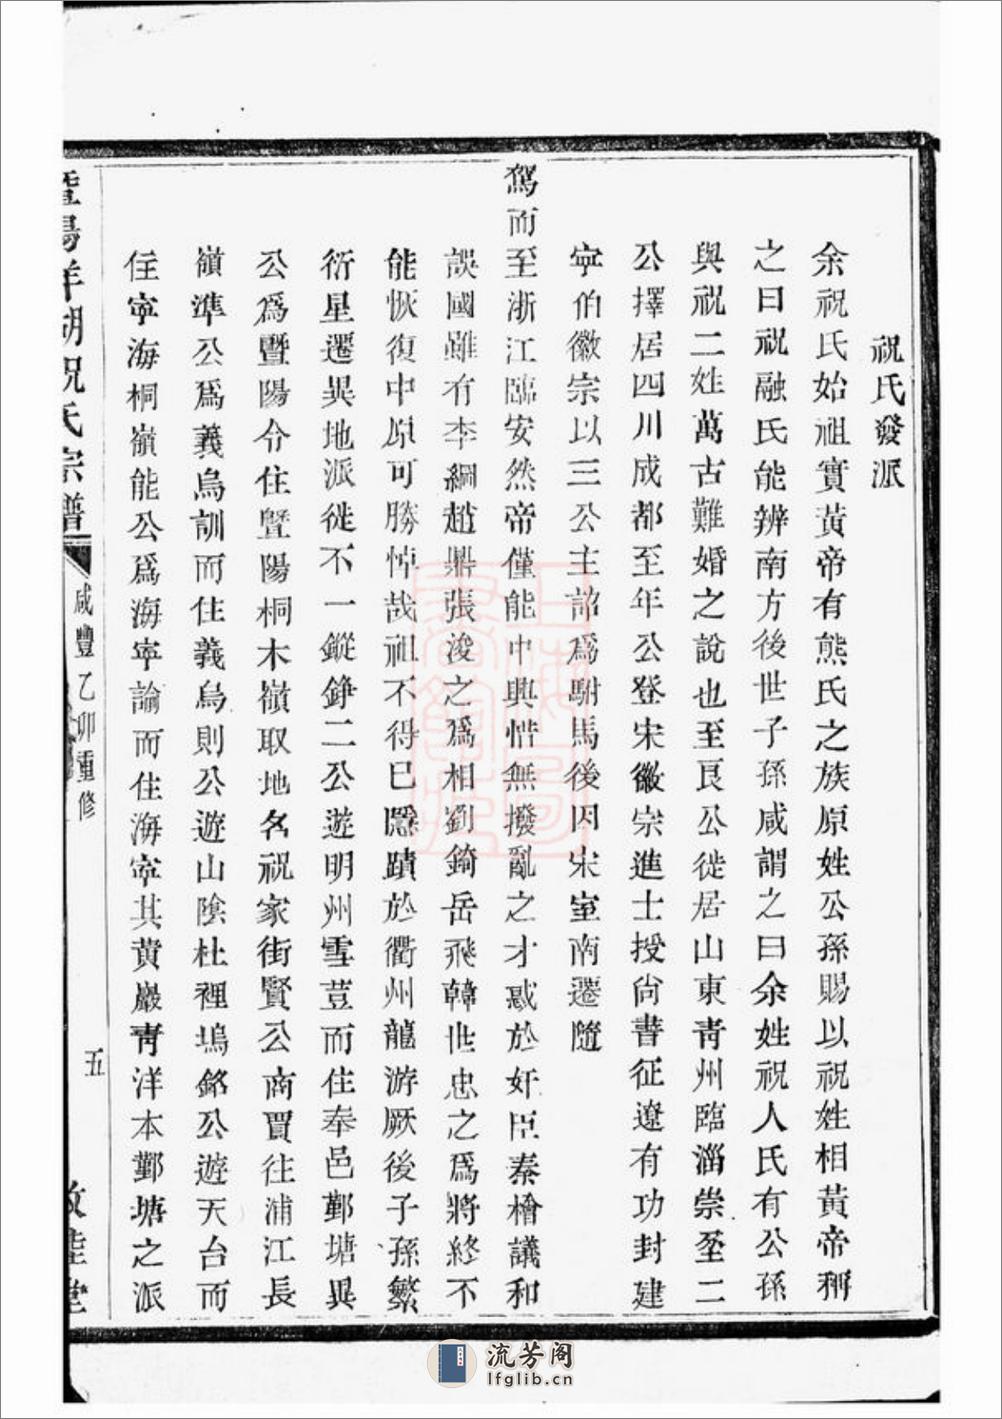 祝氏發派
余祝氏始祖實黃帝有熊氏之族原姓公孫賜以祝姓相黃帝稱
之曰祝融氏能辨南方後世子孫咸謂之曰余姓祝人氏有公孫
與祝二姓萬古難婚之說也至良公徙居山東靑州臨淄崇至二
公擇居四川成都至年公登宋徽宗進士授尙書征遼有功封建
寧伯徽宗以三公主詔爲駙馬後因宋室南遷隨
駕而至浙江臨安然帝僅能中興惜無撥亂之才惑於奸臣秦檜議和
誤國雖有李綱趙鼎張浚之爲相劉錡岳飛韓世忠之爲將終不
能恢復中原可勝悼哉祖不得已隱蹟於衢州龍游厥後子孫繁
衍星遷異地派徙不一鏦錚二公遊明州雪荳而住奉邑鄞塘異
公爲曁陽令住曁陽桐木嶺取地名祝家街賢公商賈往浦江長
嶺準公爲義烏訓而住義烏則公遊山陰杜裡塢銘公遊天台而
住寧海桐嶺能公爲海寧諭而住海寧其黃巖靑洋本鄞塘之派
暨陽洋湖祝氏宗譜
咸豐乙卯重修
五
敦睦堂
上海圖書館藏
流芳阁
lfglib.cn